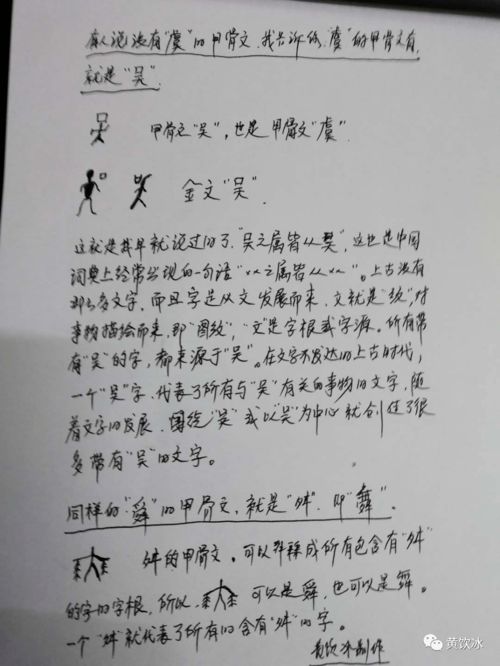 有人说没有“虞”的甲骨文,我告诉你,“虞”的甲骨文有,
就是“吴”.
甲骨文“吴”,也是甲骨文“虞”.
金文“吴”.
这就是我早就说过的了,“吴之属皆从吴”,这也是中国
词典上经常出现的一句语“××之属皆从××”。上古没有
那么多文字,而且字是从文发展而来,文就是“纹”,对
事物描绘而来,即“图纹”,“文”是字根或字源。所有带
有“吴”的字,都来源于“吴”。在文字不发达的上古时代,
一个“吴”字,代表了所有与“吴”有关的事物的文字,随
着文字的发展,围绕“吴”或以“吴”为中心就创造了很
多带有“吴”的文字。
同样的“舜”的甲骨文,就是“舛”.即“舞”.
舛的甲骨文,可以释成所有包含有“舛”
的字的字根,所以,可以是舜,也可以是舞。
一个“舛”就代表了所有的含有“舛”的字。
黄饮冰制作
黄饮冰